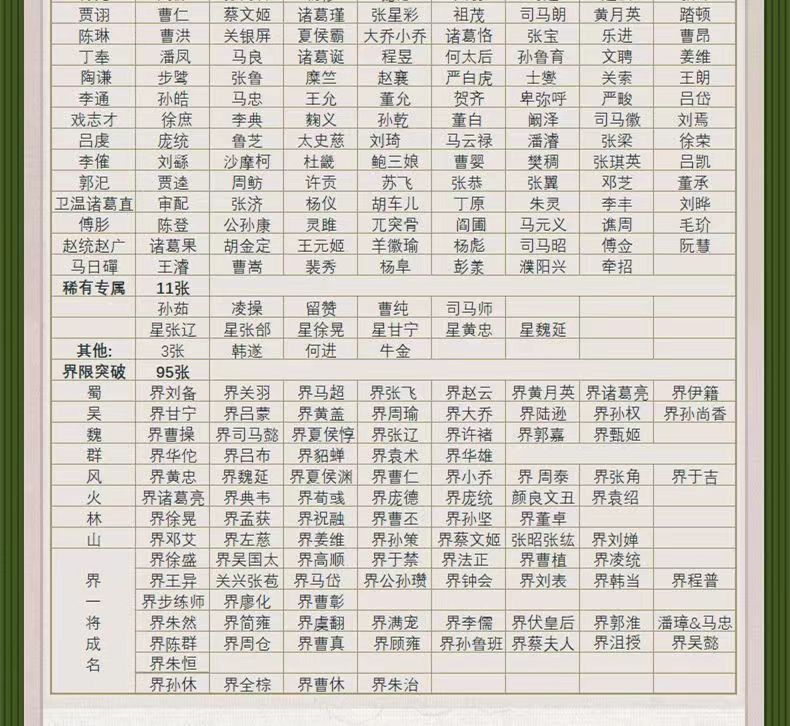 贾诩 曹仁 蔡文姬 诸葛瑾 张星彩 祖茂 司马朗 黄月英 踏顿
陈琳 曹洪 关银屏 夏侯霸 大乔小乔 诸葛恪 张宝 乐进 曹昂
丁奉 潘凤 马良 诸葛诞 程昱 何太后 孙鲁育 文聘 姜维
陶谦 步骘 张鲁 糜竺 赵襄 严白虎 士燮 关索 王朗
李通 孙皓 马忠 王允 董允 贺齐 卑弥呼 严畯 吕岱
戏志才 徐庶 李典 麴义 孙乾 董白 阚泽 司马徽 刘焉
吕虔 庞统 鲁芝 太史慈 刘琦 马云禄 潘濬 张梁 徐荣
李傕 刘繇 沙摩柯 杜畿 鲍三娘 曹婴 樊稠 张琪英 吕凯
郭汜 贾逵 周鲂 许贡 苏飞 张恭 张翼 邓芝 董承
卫温诸葛直 审配 张济 杨仪 胡车儿 丁原 朱灵 李丰 刘晔
傅肜 陈登 公孙康 灵雎 兀突骨 阎圃 马元义 谯周 毛玠
赵统赵广 诸葛果 胡金定 王元姬 羊徽瑜 杨彪 司马昭 傅佥 阮慧
马日磾 王濬 曹嵩 裴秀 杨阜 彭羕 濮阳兴 牵招
稀有专属 11张
孙茹 凌操 留赞 曹纯 司马师
星张辽 星张郃 星徐晃 星甘宁 星黄忠 星魏延
其他: 3张 韩遂 何进 牛金
界限突破 95张
蜀 界刘备 界关羽 界马超 界张飞 界赵云 界黄月英 界诸葛亮 界伊籍
吴 界甘宁 界吕蒙 界黄盖 界周瑜 界大乔 界陆逊 界孙权 界孙尚香
魏 界曹操 界司马懿 界夏侯惇 界张辽 界许褚 界郭嘉 界甄姬
群 界华佗 界吕布 界貂蝉 界袁术 界华雄
风 界黄忠 界魏延 界夏侯渊 界曹仁 界小乔 界 周泰 界张角 界于吉
火 界诸葛亮 界典韦 界荀彧 界庞德 界庞统 颜良文丑 界袁绍
林 界徐晃 界孟获 界祝融 界曹丕 界孙坚 界董卓
山 界邓艾 界左慈 界姜维 界孙策 界蔡文姬 张昭张纮 界刘婵
界一将成名
界徐盛 界吴国太 界高顺 界于禁 界法正 界曹植 界凌统
界王异 关兴张苞 界马岱 界公孙瓒 界钟会 界刘表 界韩当 界程普
界步练师 界廖化 界曹彰
界朱然 界简雍 界虞翻 界满宠 界李儒 界伏皇后 界郭淮 潘璋&马忠
界陈群 界周仓 界曹真 界顾雍 界孙鲁班 界蔡夫人 界沮授 界吴懿
界朱恒
界孙休 界全琮 界曹休 界朱治